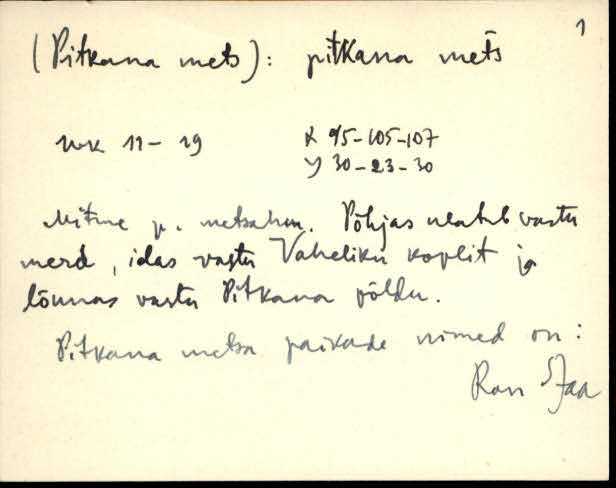 1
(Pitkana mets): pitkana metš
wk 11-29 X 95-105-107
Y 30-23-30
Mitme p. metsatum. Põhjas ulatub vastu
merd, idas vastu Vaheliku koplit ja
lõunas vastu Pitkana põldu.
Pitkana metsa paikade nimed on:
Ran